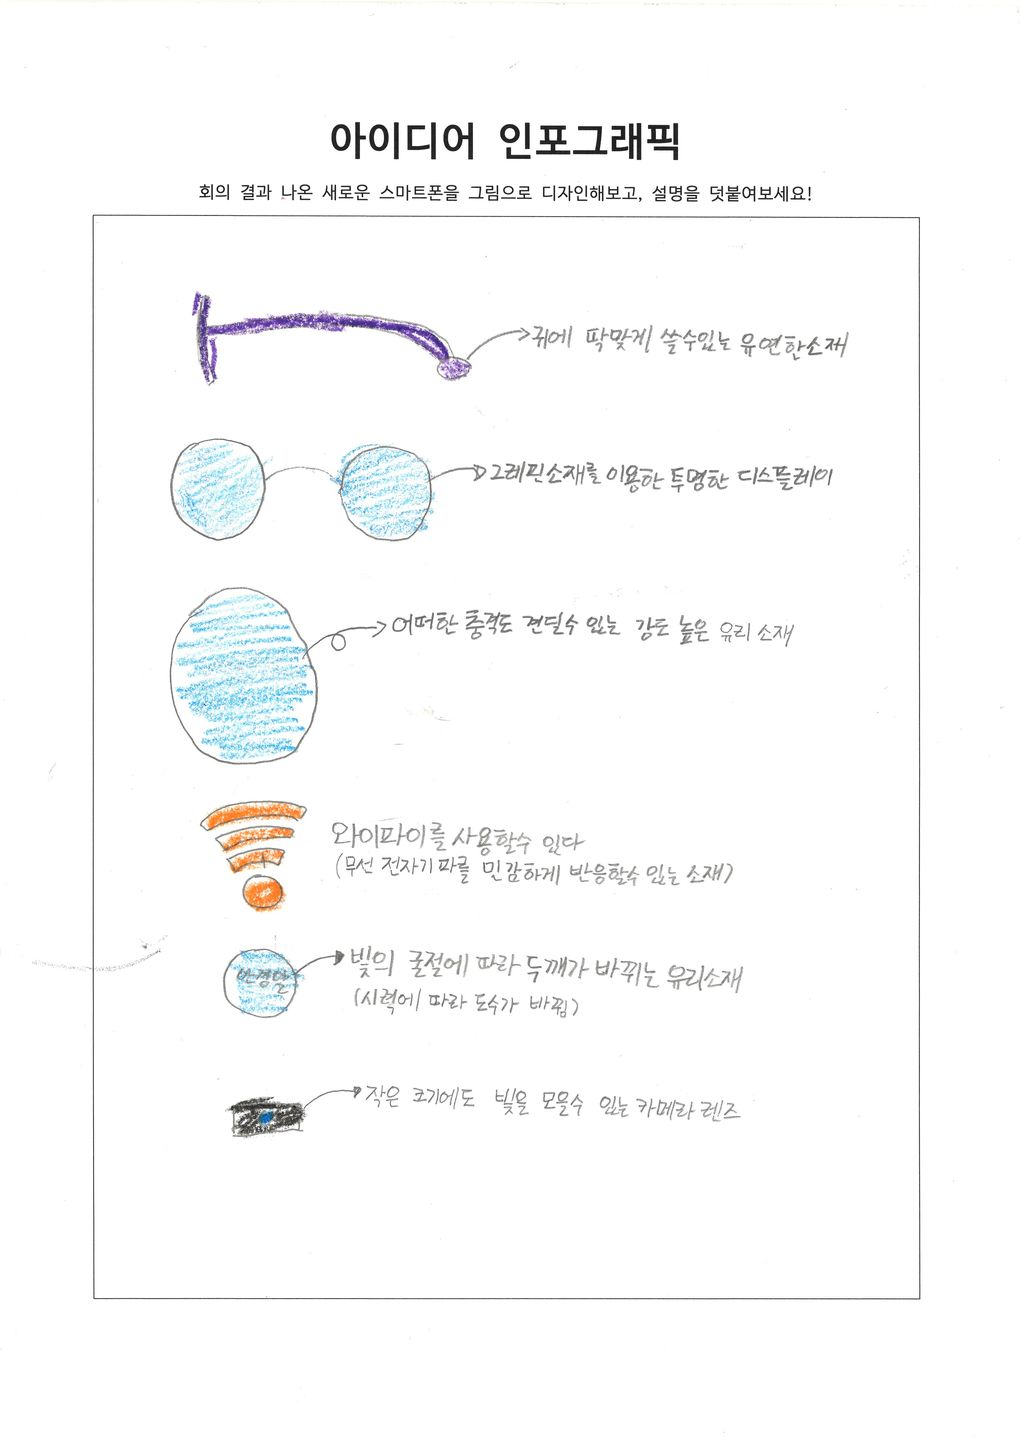 아이디어 인포그래픽
회의 결과 나온 새로운 스마트폰을 그림으로 디자인해보고, 설명을 덧붙여보세요!
귀에 딱맞게 쓸수있는 유연한소재
그레핀소재를 이용한 투명한 디스플레이
어떠한 충격도 견딜수 있는 강도 높은 유리 소재
와이파이를 사용할수 있다
(무선 전자기파를 민감하게 반응할수 있는 소재)
안경알
빛의 굴절에 따라 두께가 바뀌는 유리소재
(시력에 따라 도수가 바뀜)
작은 크기에도 빛을 모을수 있는 카메라 렌즈